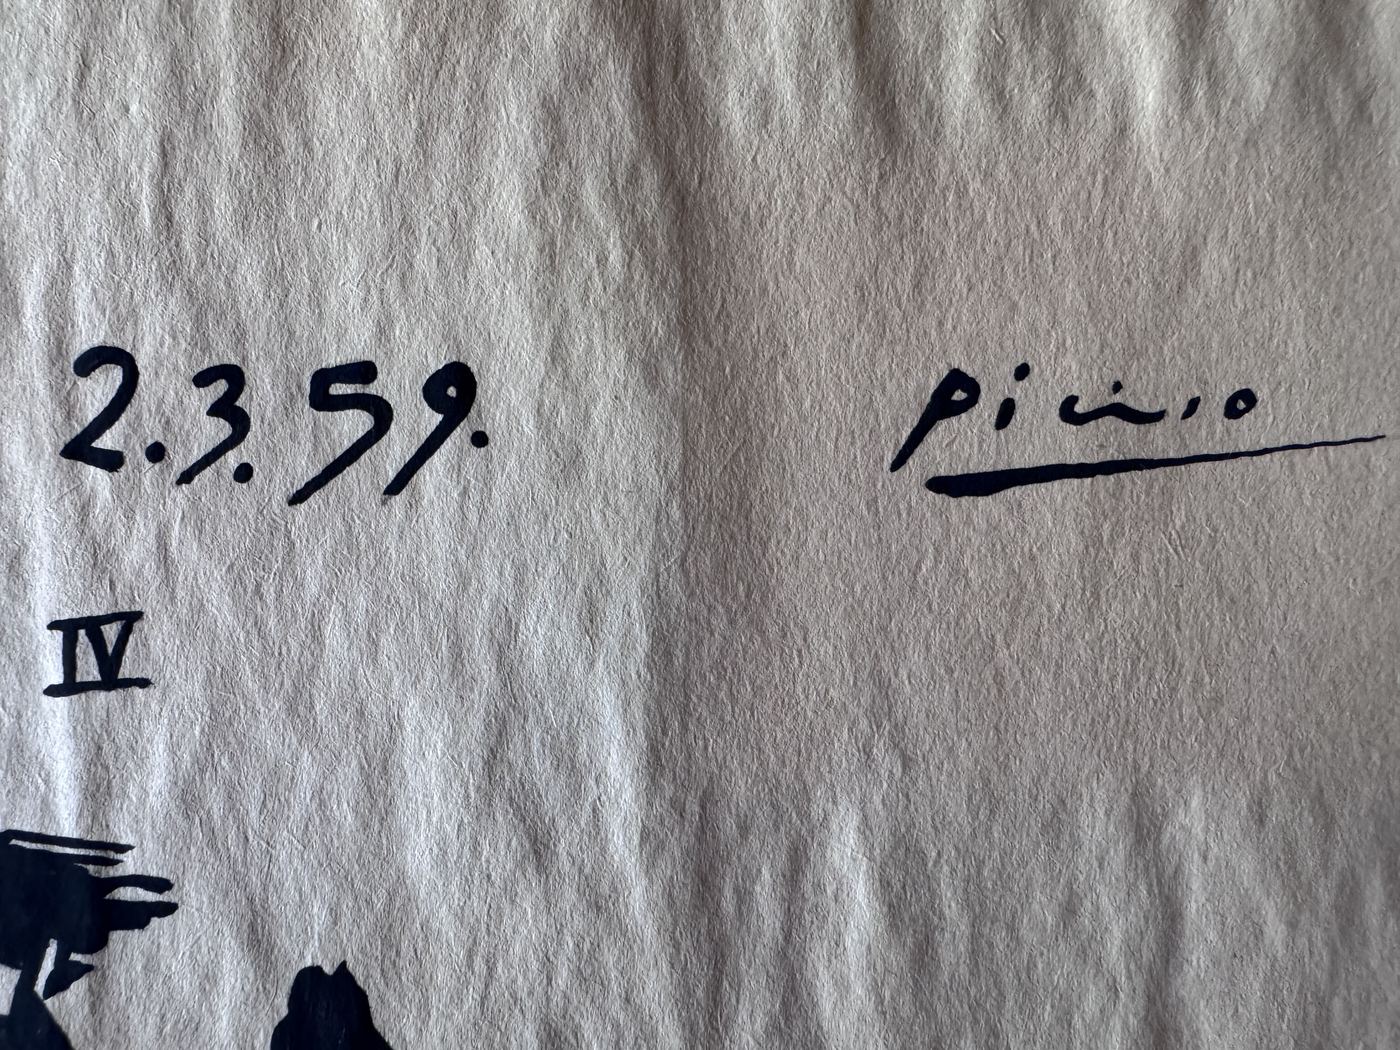 2.3.59.
Picasso
IV